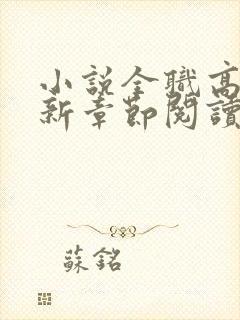 小說全職高
新章節閱讀
蘇銘